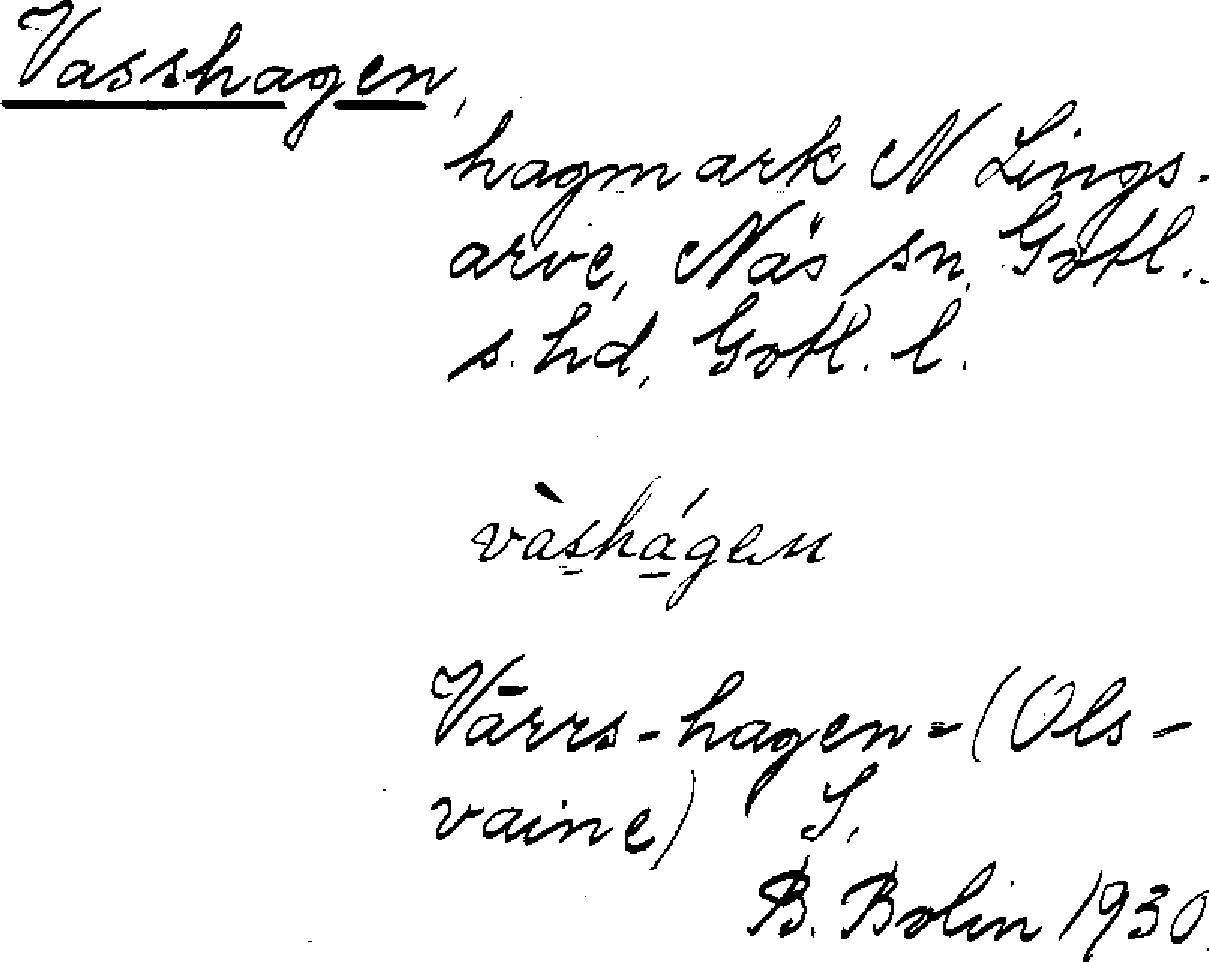 Vasshagen,
hagmark N Lings-
arve, Näs sn, Gotl.
s. hd, Gotl. l.
vàshágen
Vārrs-hagen = (Ols-
vaine) S.
B. Bolin 1930.